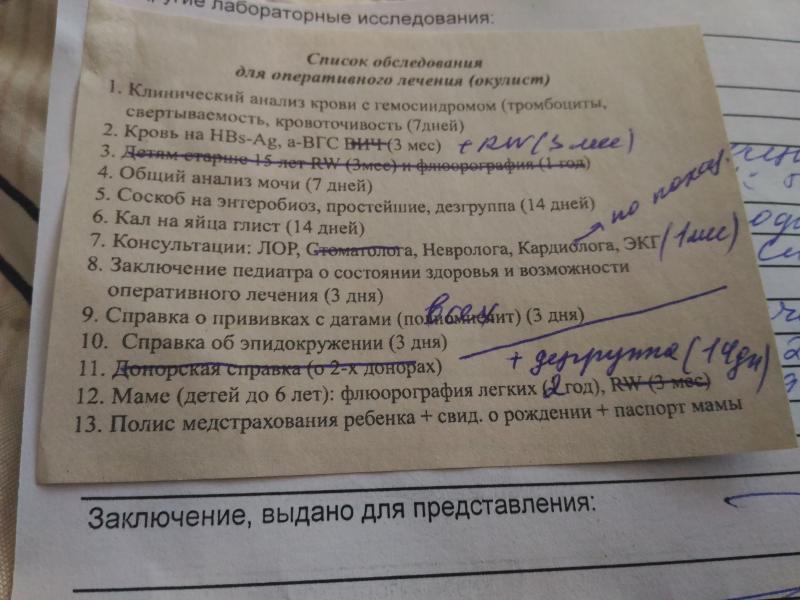 другие лабораторные исследования:
Список обследования
для оперативного лечения (окулист)
1. Клинический анализ крови с гемосиндромом (тромбоциты,
свертываемость, кровоточивость (7дней)
2. Кровь на HBs-Ag, а-ВГС ВИЧ (3 мес) + RW (3 мес)
3. Детям старше 15 лет RW (3мес) и флюорография (1 год)
4. Общий анализ мочи (7 дней)
5. Соскоб на энтеробиоз, простейшие, дезгруппа (14 дней)
6. Кал на яйца глист (14 дней)
по показ.
7. Консультации: ЛОР, Стоматолога, Невролога, Кардиолога, ЭКГ (1 мес)
8. Заключение педиатра о состоянии здоровья и возможности
оперативного лечения (3 дня)
9. Справка о прививках с датами (полиомиелит) (3 дня)
всех
10. Справка об эпидокружении (3 дня)
11. Донорская справка (о 2-х донорах)
+ дезгруппа (14дн)
12. Маме (детей до 6 лет): флюорография легких (2 год), RW (3 мес)
13. Полис медстрахования ребенка + свид. о рождении + паспорт мамы
Заключение, выдано для представления: